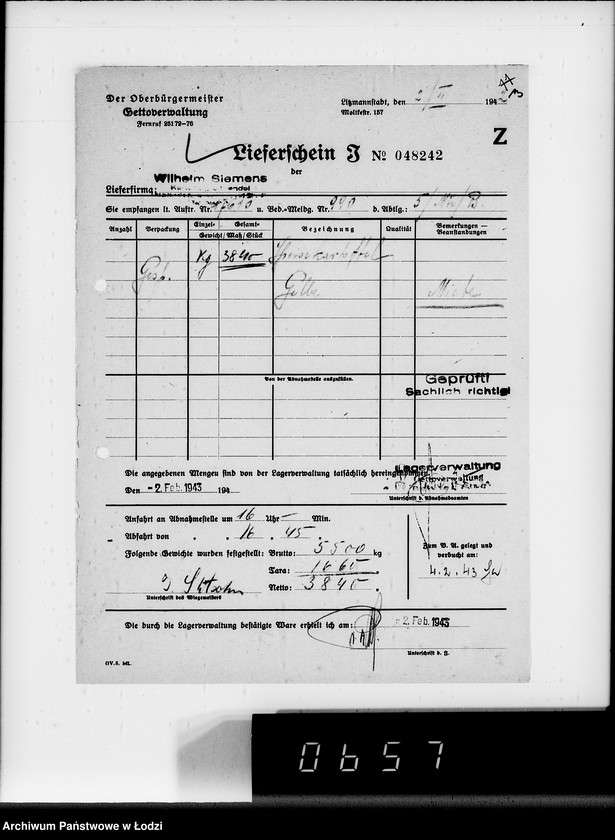 Der Oberbürgermeister
Gettoverwaltung
Fernruf 25172-76
Litzmannstadt, den 2/II 1943
Moltkestr. 157
Z
Lieferschein J № 048242
der
Wilhelm Siemens
Lieferfirma:
Sie empfangen lt. Auftr. Nr. u. Bed.-Meldg. Nr. 990 d. Abtlg.:
Anzahl Verpackung Einzel- Gesamt- Gewicht/Maß/Stück Bezeichnung Qualität Bemerkungen — Beanstandungen
Kg 3840 Speisekartoffel
Gelbe Miete
Von der Abnahmestelle auszufüllen.
Geprüft!
Sachlich richtig!
Die angegebenen Mengen sind von der Lagerverwaltung tatsächlich hereingenommen.
Lagerverwaltung
Gettoverwaltung
Den - 2. Feb. 1943 194
Unterschrift d. Abnahmebeamten
Anfahrt an Abnahmestelle um 16 Uhr — Min.
Abfahrt von " " 16 " 45 "
Folgende Gewichte wurden festgestellt: Brutto: 5500 kg
Tara: 1660 "
Netto: 3840 "
Unterschrift des Wiegemeisters
Zum B. A. gelegt und
verbucht am:
4.2.43
Die durch die Lagerverwaltung bestätigte Ware erhielt ich am: - 2. Feb. 1943
Unterschrift d. F.
GV. 5. ML.
0657
Archiwum Państwowe w Łodzi